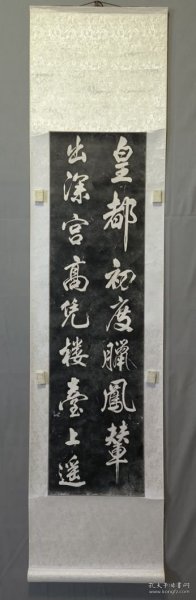 皇都初度臘鳳輦
出深宫高凭樓臺上遥
孔夫子旧书网
www.kongfz.com